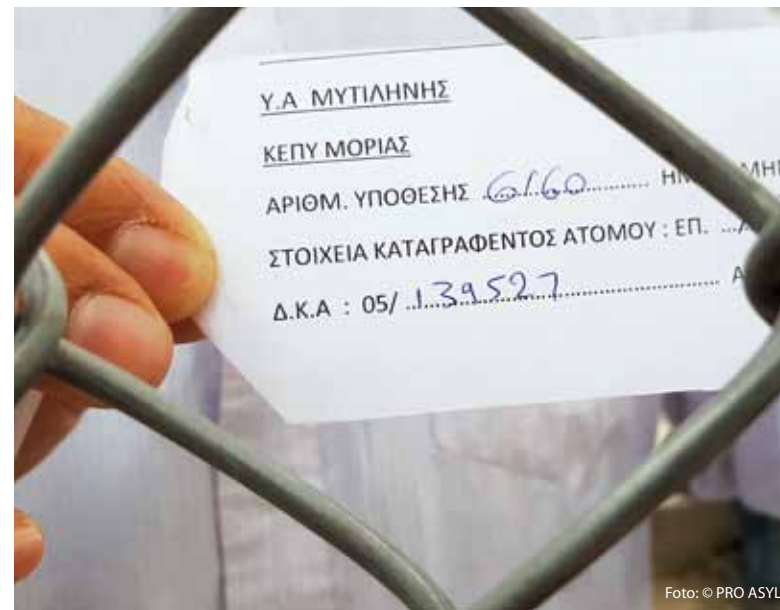 Υ.Α ΜΥΤΙΛΗΝΗΣ
ΚΕΠΥ ΜΟΡΙΑΣ
ΑΡΙΘΜ. ΥΠΟΘΕΣΗΣ 6160
ΣΤΟΙΧΕΙΑ ΚΑΤΑΓΡΑΦΕΝΤΟΣ ΑΤΟΜΟΥ : ΕΠ.
Δ.Κ.Α : 05/ 139527
Foto: © PRO ASYL